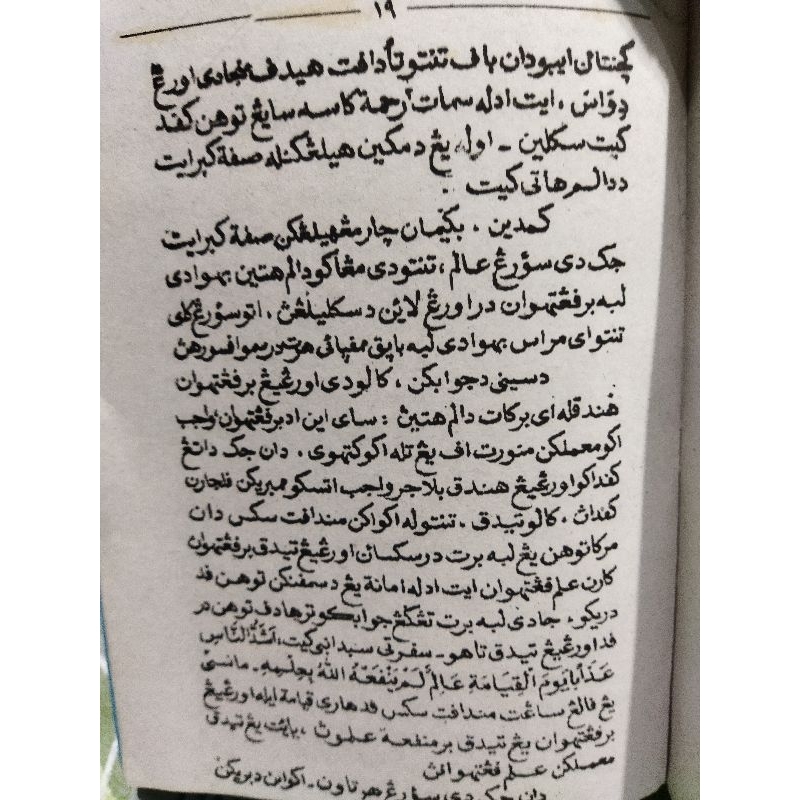 ١٩
ڬچنتائن ايبودان باڤ تنتو تأدافت هيدف منجادي اورڠ
دواس ، ايت ادله سمات٢ رحمة كاسه سايڠ توهن كفد
كيت سكلين - اوله يڠ دمكين هيلڠكنله صفة كبرايت
ددالم هاتي كيت .
كمدين ، بڬيمان چار مڠهيلڠكن صفة كبرايت
جك دي سؤرڠ عالم ، تنتو دي مڠاكو دالم هتين بهوا دي
لبه برفڠتهوان در اورڠ لائن دسكليلڠن ، اتو سؤرڠ كلي
تنتو اي مراس بهوا دي لبه باپق ممڤپائي هرت در
دسيني دجوابكن ، كالو دي اورڠ يڠ برفڠتهوان
هندقله اي بركات دالم هتين : ساي اين اد برفڠتهوان واجب
اكو معملكن منورت اف يڠ تله اكو كتهوي . دان جك داتڠ
كفداكو اورڠ يڠ هندق بلاجر واجب اتسكو ممبريكن فلجارن
كفداڽ . كالو تيدق ، تنتوله اكو اكن مندافت سكس دان
مركا توهن يڠ لبه برت در سكسان اورڠ يڠ تيدق برفڠتهوان
كارن علم فڠتهوان ايت ادله امانة يڠ دسمفنكن توهن فد
ديريكو ، جادي لبه برت تڠݢڠ جوابكو ترهادف توهن در
فد اورڠ يڠ تيدق تاهو - سفرتي سبدا نبي كيت ، اَشَدُّ النَّاسِ
عَذَابًا يَوْمَ الْقِيَامَةِ عَالِمٌ لَمْ يَنْفَعْهُ اللهُ بِعِلْمِهِ - مأنسي
يڠ فاليڠ ساڠت مندافت سكس فد هاري قيامة ايله اورڠ يڠ
برفڠتهوان يڠ تيدق برمنفعة علموڽ ، يائيت يڠ تيدق
معملكن علم فڠتهوانڽ
دان جك دي سؤرڠ هرتاون - اكو اين دبريكن